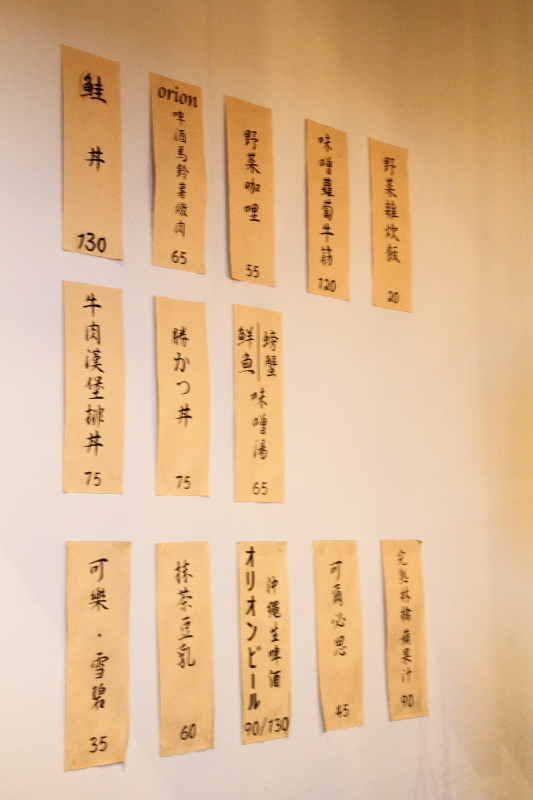 鮭丼
130
orion
啤酒馬鈴薯燉肉
65
野菜咖哩
55
味噌蘿蔔牛筋
120
野菜雜炊飯
20
牛肉漢堡排丼
75
勝かつ丼
75
螃蟹
鮮魚
味噌湯
65
可樂・雪碧
35
抹茶豆乳
60
沖繩生啤酒
オリオンビール
90/130
可爾必思
45
完熟林檎蘋果汁
90